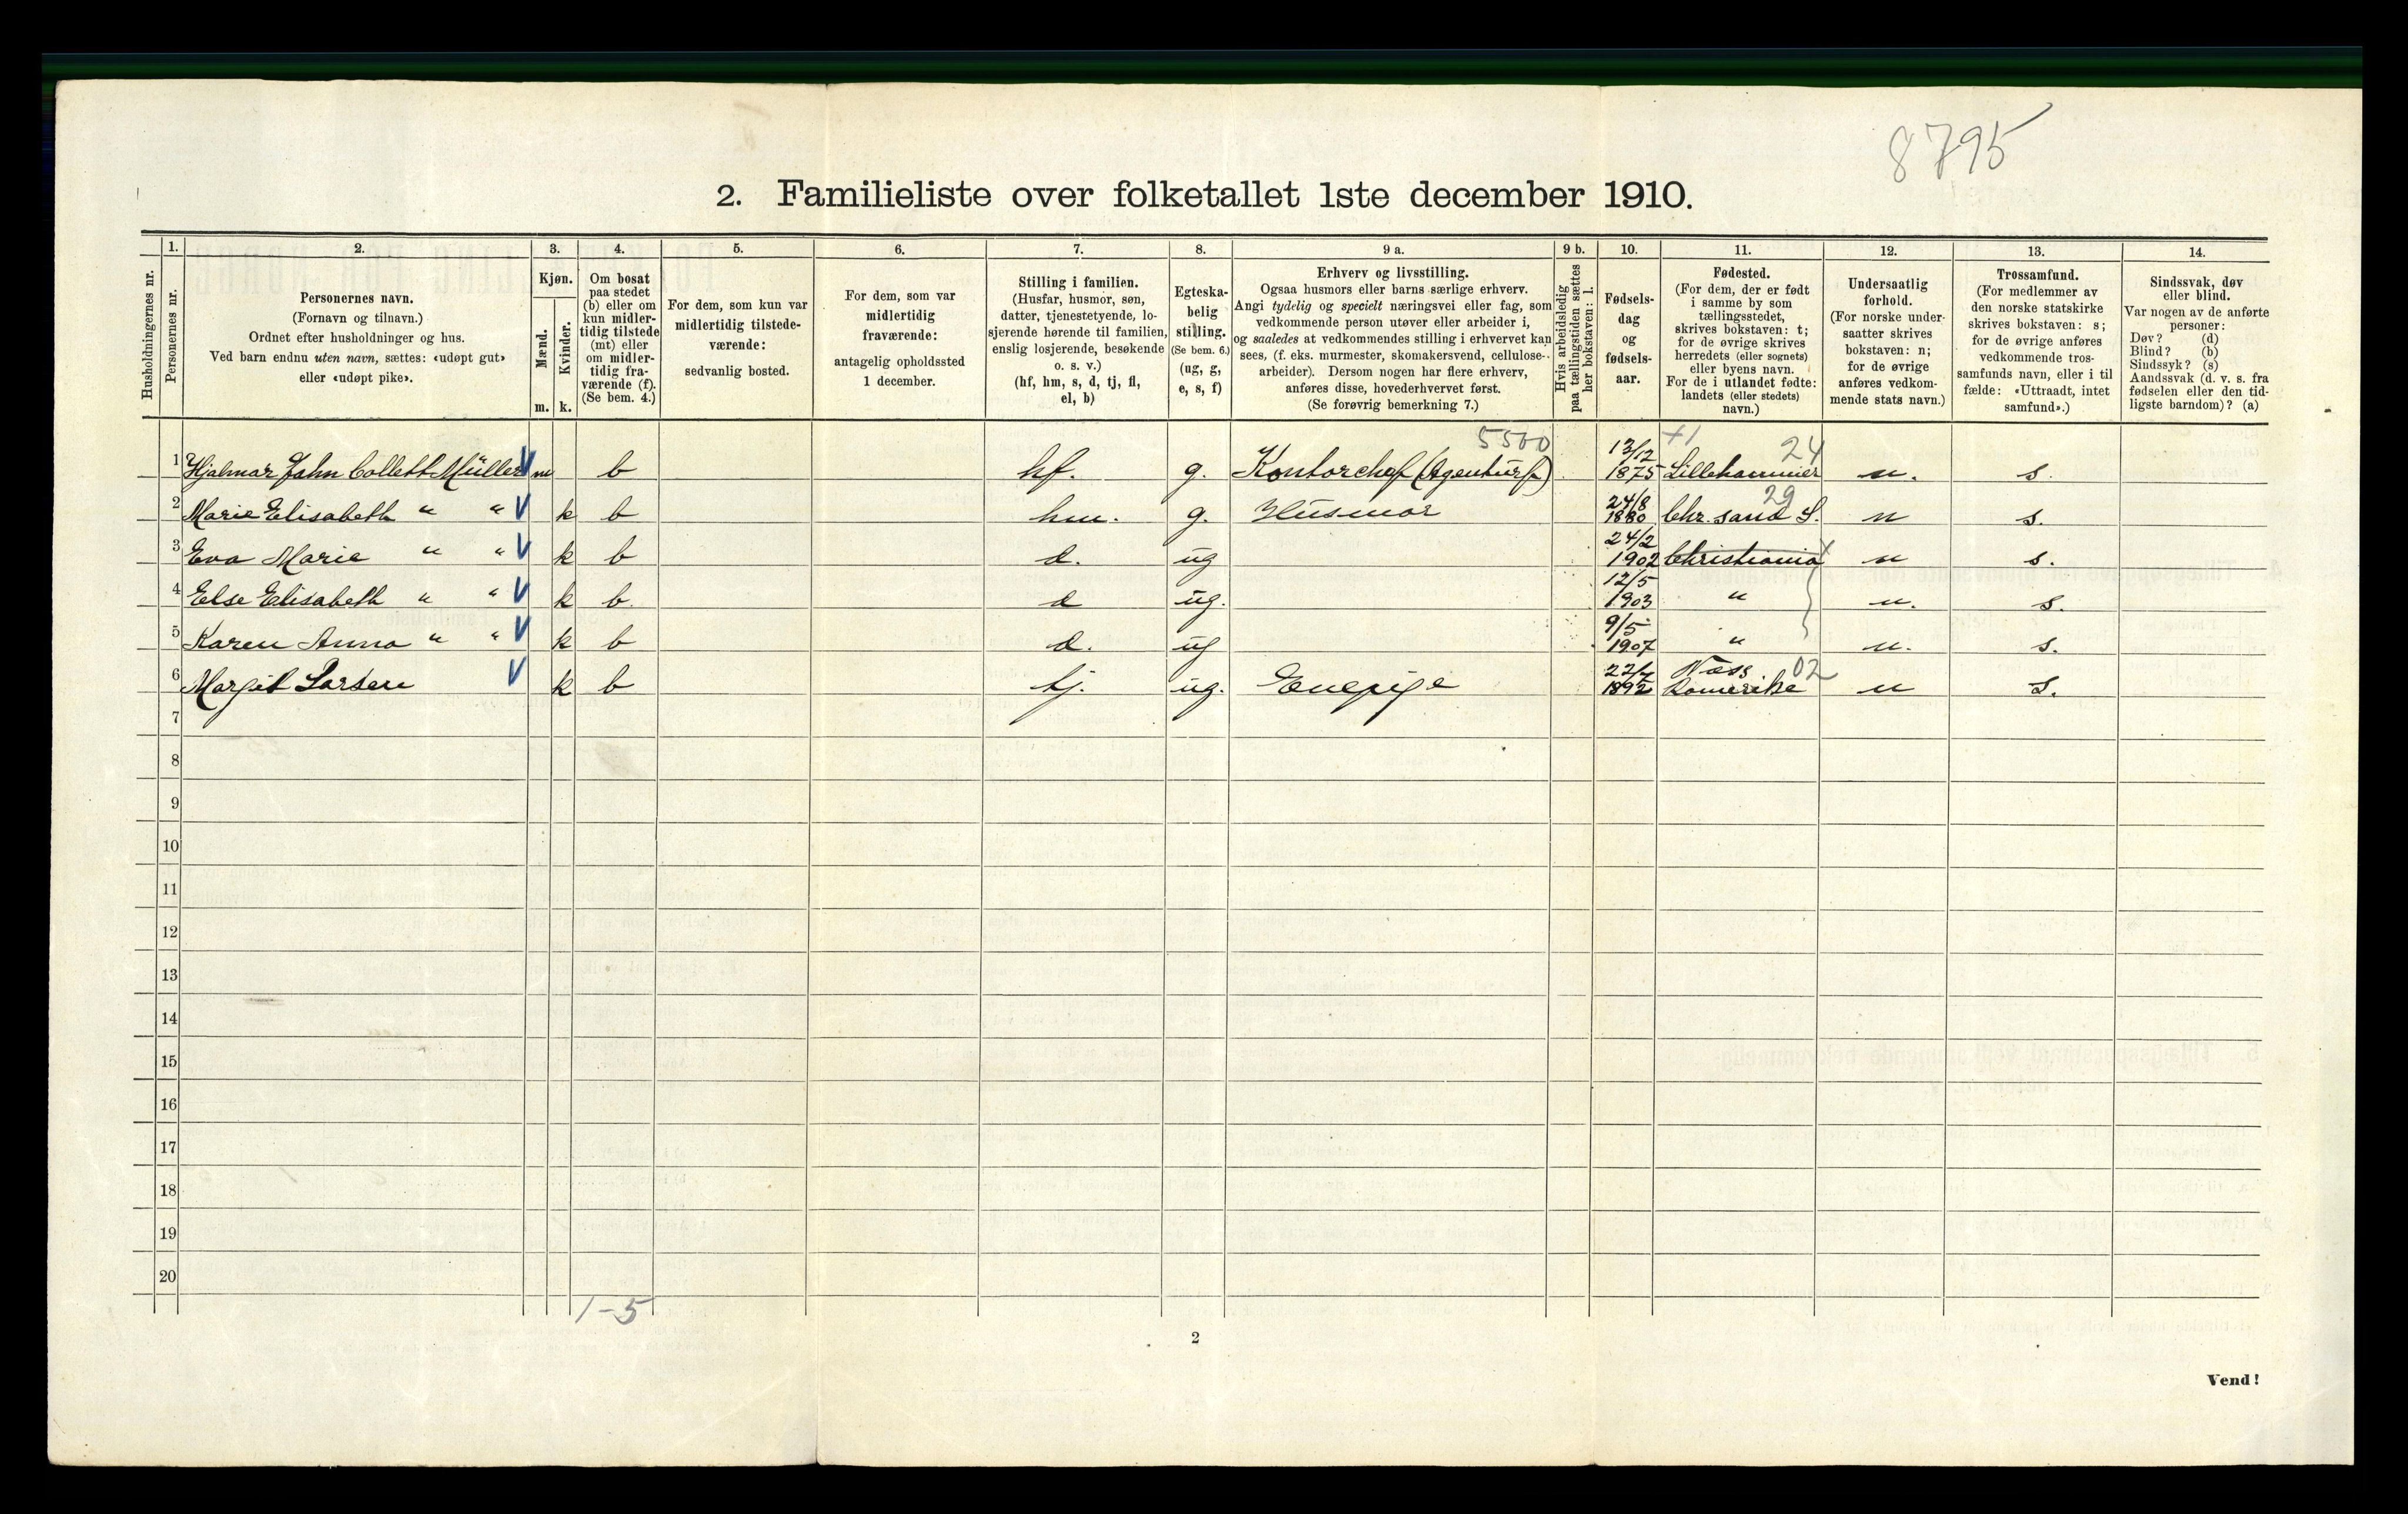 8795
2. Familieliste over folketallet 1ste december 1910.
Husholdningernes nr.
1.
Personernes nr.
2.
Personernes navn.
(Fornavn og tilnavn.)
Ordnet efter husholdninger og hus.
Ved barn endnu uten navn, sættes: «udøpt gut»
eller «udøpt pike».
3.
Kjøn.
Mænd.
m.
Kvinder.
k.
4.
Om bosat
paa stedet
(b) eller om
kun midler-
tidig tilstede
(mt) eller
om midler-
tidig fra-
værende (f).
(Se bem. 4.)
5.
For dem, som kun var
midlertidig tilstede-
værende:
sedvanlig bosted.
6.
For dem, som var
midlertidig
fraværende:
antagelig opholdssted
1 december.
7.
Stilling i familien.
(Husfar, husmor, søn,
datter, tjenestetyende, lo-
sjerende hørende til familien,
enslig losjerende, besøkende
o. s. v.)
(hf, hm, s, d, tj, fl,
el, b)
8.
Egteska-
belig
stilling.
(Se bem. 6.)
(ug, g,
e, s, f)
9 a.
Erhverv og livsstilling.
Ogsaa husmors eller barns særlige erhverv.
Angi tydelig og specielt næringsvei eller fag, som
vedkommende person utøver eller arbeider i,
og saaledes at vedkommendes stilling i erhvervet kan
sees, (f. eks. murmester, skomakersvend, cellulose-
arbeider). Dersom nogen har flere erhverv,
anføres disse, hovederhvervet først.
(Se forøvrig bemerkning 7.)
9 b.
Hvis arbeidsledig
paa tællingstiden sættes
her bokstaven: l.
10.
Fødsels-
dag
og
fødsels-
aar.
11.
Fødested.
(For dem, der er født
i samme by som
tællingsstedet,
skrives bokstaven: t;
for de øvrige skrives
herredets (eller sognets)
eller byens navn.
For de i utlandet fødte:
landets (eller stedets)
navn.)
12.
Undersaatlig
forhold.
(For norske under-
saatter skrives
bokstaven: n;
for de øvrige
anføres vedkom-
mende stats navn.)
13.
Trossamfund.
(For medlemmer av
den norske statskirke
skrives bokstaven: s;
for de øvrige anføres
vedkommende tros-
samfunds navn, eller i til
fælde: «Uttraadt, intet
samfund».)
14.
Sindssvak, døv
eller blind.
Var nogen av de anførte
personer:
Døv? (d)
Blind? (b)
Sindssyk? (s)
Aandssvak (d. v. s. fra
fødselen eller den tid-
ligste barndom)? (a)
5500 13/12 24
1 Hjalmar John Collett Müller m b hf. g. Kontorchef (Agenturf) 1875 Lillehammer n. s.
24/8 29
2 Marie Elisabeth " " k b hm. g. Husmor 1880 Chr.sand S. n s.
24/2
3 Eva Marie " " k b d. ug 1902 Christiania n s.
12/5
4 Else Elisabeth " " k b. d ug. 1903 " n. s.
9/5
5 Karen Anna " " k b d. ug 1907 " n. s.
Næss 02
6 Margit Larsen k b tj. ug. Enepige 1892 Romerike n S.
7
8
9
10
11
12
13
14
15
16
17
18
19
20
1-5
2
Vend!